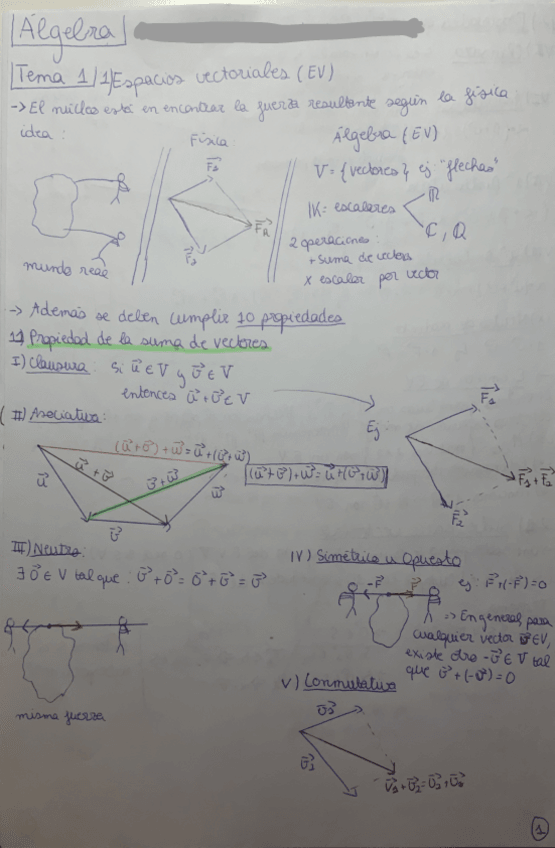 Álgebra
Tema 1 / 1) Espacios vectoriales (EV)
-> El núcleo está en encontrar la fuerza resultante según la física
idea:
Física
Álgebra (EV)
F₁
F₂
F_R
mundo real
V = {vectores} ej "flechas"
IK = escalares
ℝ
ℂ, ℚ
2 operaciones:
+ suma de vectores
x escalar por vector
-> Además se deben cumplir 10 propiedades
1) Propiedad de la suma de vectores
I) Clausura: Si u⃗ ∈ V y v⃗ ∈ V
entonces u⃗ + v⃗ ∈ V
Ej
F₁
F₁ + F₂
F₂
II) Asociativa:
(u⃗ + v⃗) + w⃗ = u⃗ + (v⃗ + w⃗)
u⃗
u⃗ + v⃗
v⃗ + w⃗
w⃗
v⃗
(u⃗ + v⃗) + w⃗ = u⃗ + (v⃗ + w⃗)
III) Neutro:
∃ 0⃗ ∈ V tal que: v⃗ + 0⃗ = 0⃗ + v⃗ = v⃗
misma fuerza
IV) Simétrico u Opuesto
-F⃗
F⃗
ej: F⃗ + (-F⃗) = 0
=> En general, para
cualquier vector v⃗ ∈ V,
existe otro -v⃗ ∈ V tal
que v⃗ + (-v⃗) = 0
V) Conmutativa
1